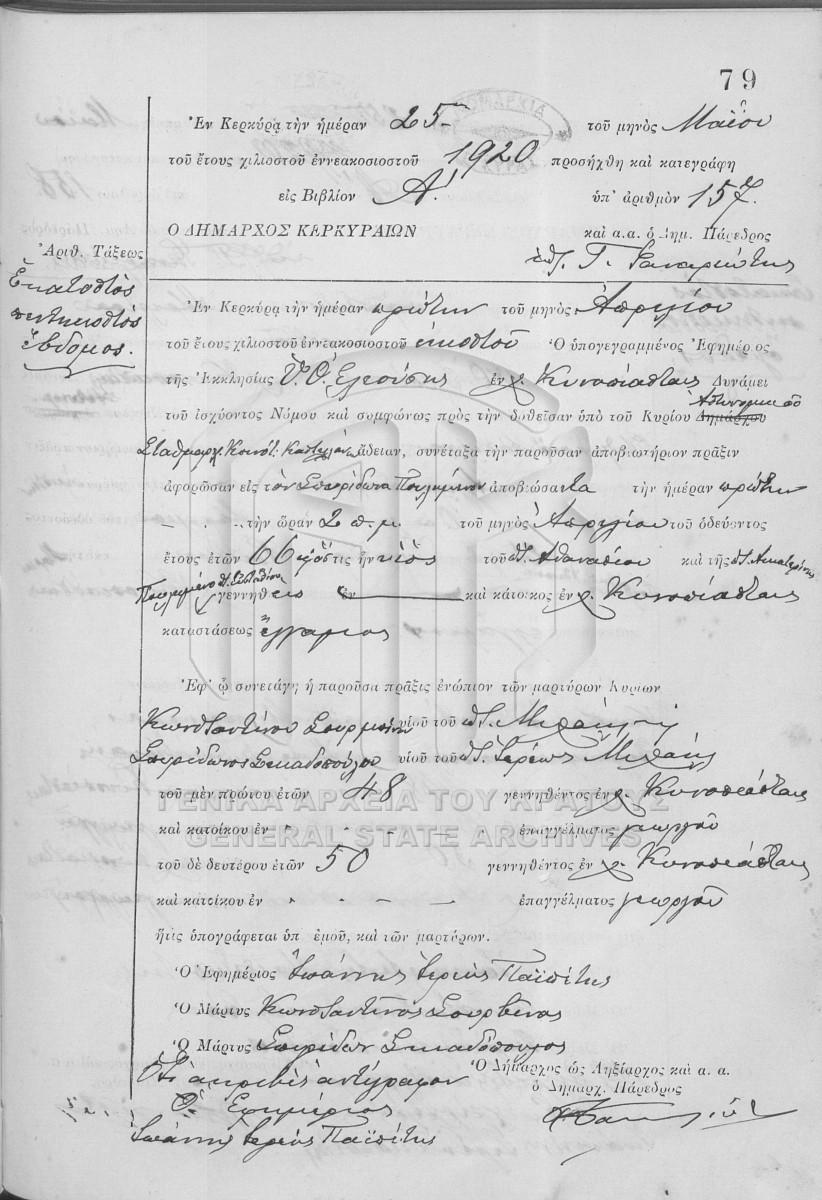 79
Ἐν Κερκύρᾳ τὴν ἡμέραν 25 τοῦ μηνὸς Μαΐου
τοῦ ἔτους χιλιοστοῦ ἐννεακοσιοστοῦ 1920 προσήχθη καὶ κατεγράφη
εἰς Βιβλίον Α! ὑπ' ἀριθμὸν 157
Ο ΔΗΜΑΡΧΟΣ ΚΕΡΚΥΡΑΙΩΝ καὶ α.α. ὁ Δημ. Πάρεδρος
Γ.
Ἀριθ. Τάξεως
Ἑκατοστὸς
πεντηκοστὸς
ἕβδομος.
Ἐν Κερκύρᾳ τὴν ἡμέραν πρώτην τοῦ μηνὸς Ἀπριλίου
τοῦ ἔτους χιλιοστοῦ ἐννεακοσιοστοῦ εἰκοστοῦ Ὁ ὑπογεγραμμένος Ἐφημέριος
τῆς Ἐκκλησίας Ὑ. Θ. Ἐλεούσης ἐν χ. Κυνοπιάσταις Δυνάμει
τοῦ ἰσχύοντος Νόμου καὶ συμφώνως πρὸς τὴν δοθεῖσαν ὑπὸ τοῦ Κυρίου Δημάρχου Ἀστυνομικοῦ
Σταθμάρχ. Κοινότ. Καστελλάνων ἄδειαν, συνέταξα τὴν παροῦσαν ἀποβιωτήριον πρᾶξιν
ἀφορῶσαν εἰς τὸν Σπυρίδωνα Πουλημένον ἀποβιώσαντα τὴν ἡμέραν πρώτην
τὴν ὥραν 2 π.μ. τοῦ μηνὸς Ἀπριλίου τοῦ ὁδεύοντος
ἔτους ἐτῶν 66 ὅστις ἦν υἱὸς τοῦ π. Ἀθανασίου καὶ τῆς π. Αἰκατερίνης
Πουλημένο γεννηθεὶς ἐν καὶ κάτοικος ἐν χ. Κυνοπιάσταις
καταστάσεως ἔγγαμος
Ἐφ' ᾧ συνετάγη ἡ παροῦσα πρᾶξις ἐνώπιον τῶν μαρτύρων Κυρίων
Κωνσταντίνου Σουρβίνου υἱοῦ τοῦ π. Μιχαὴλ
Σπυρίδωνος Σκιαδοπούλου υἱοῦ τοῦ π. Ἱερέως Μιχαὴλ
τοῦ μὲν πρώτου ἐτῶν 48 γεννηθέντος ἐν χ. Κυνοπιάσταις
καὶ κατοίκου ἐν " ἐπαγγέλματος γεωργοῦ
τοῦ δὲ δευτέρου ἐτῶν 50 γεννηθέντος ἐν χ. Κυνοπιάσταις
καὶ κατοίκου ἐν " ἐπαγγέλματος γεωργοῦ
ἥτις ὑπογράφεται ὑπ' ἐμοῦ, καὶ τῶν μαρτύρων.
Ὁ Ἐφημέριος Ἰωάννης Ἱερεὺς Παϊπέτης
Ὁ Μάρτυς Κωνσταντῖνος Σουρβίνος
Ὁ Μάρτυς Σπυρίδων Σκιαδόπουλος
Ὅτι ἀκριβὲς ἀντίγραφον
Ὁ Ἐφημέριος
Ἰωάννης Ἱερεὺς Παϊπέτης
Ὁ Δήμαρχος ὡς Ληξίαρχος καὶ α. α.
ὁ Δημαρχ. Πάρεδρος
ΓΕΝΙΚΑ ΑΡΧΕΙΑ ΤΟΥ ΚΡΑΤΟΥΣ
GENERAL STATE ARCHIVES